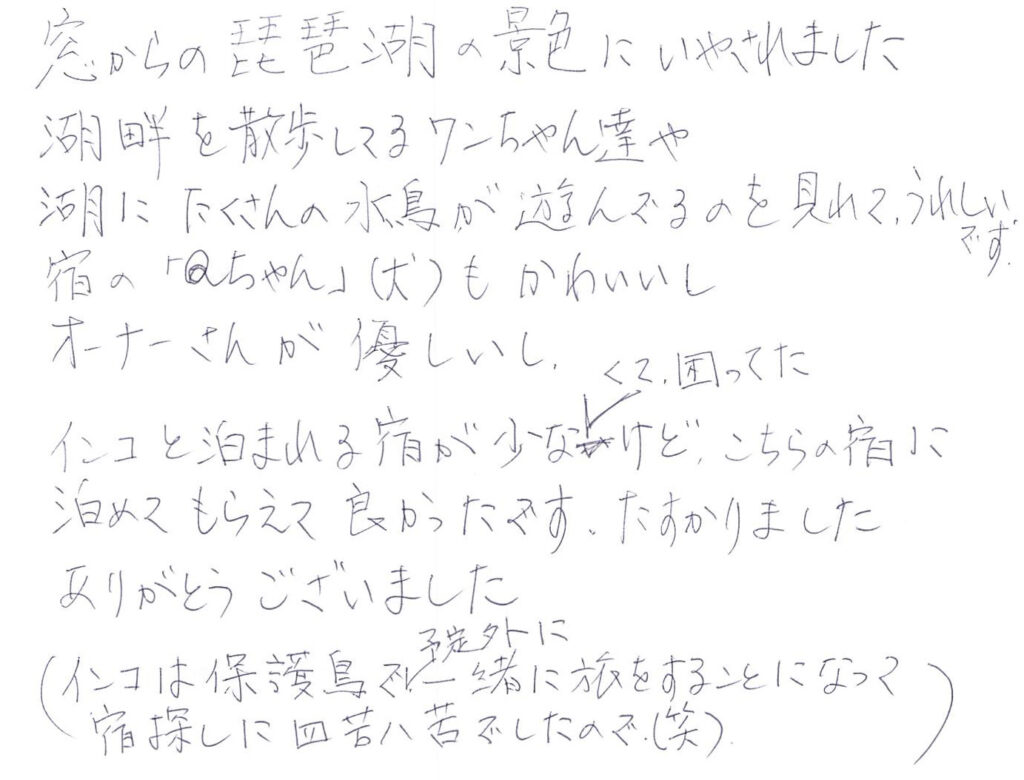 窓からの琵琶湖の景色にいやされました
湖畔を散歩してるワンちゃん達や
湖にたくさんの水鳥が遊んでるのを見れて、うれしいです。
宿の「Qちゃん」(犬)もかわいいし
オーナーさんが優しいし、
インコと泊まれる宿が少なくて、困ってたけど、こちらの宿に
泊めてもらえて良かったです、たすかりました
ありがとうございました
(インコは保護鳥で予定外に一緒に旅をすることになって
宿探しに四苦八苦でしたので、(笑))